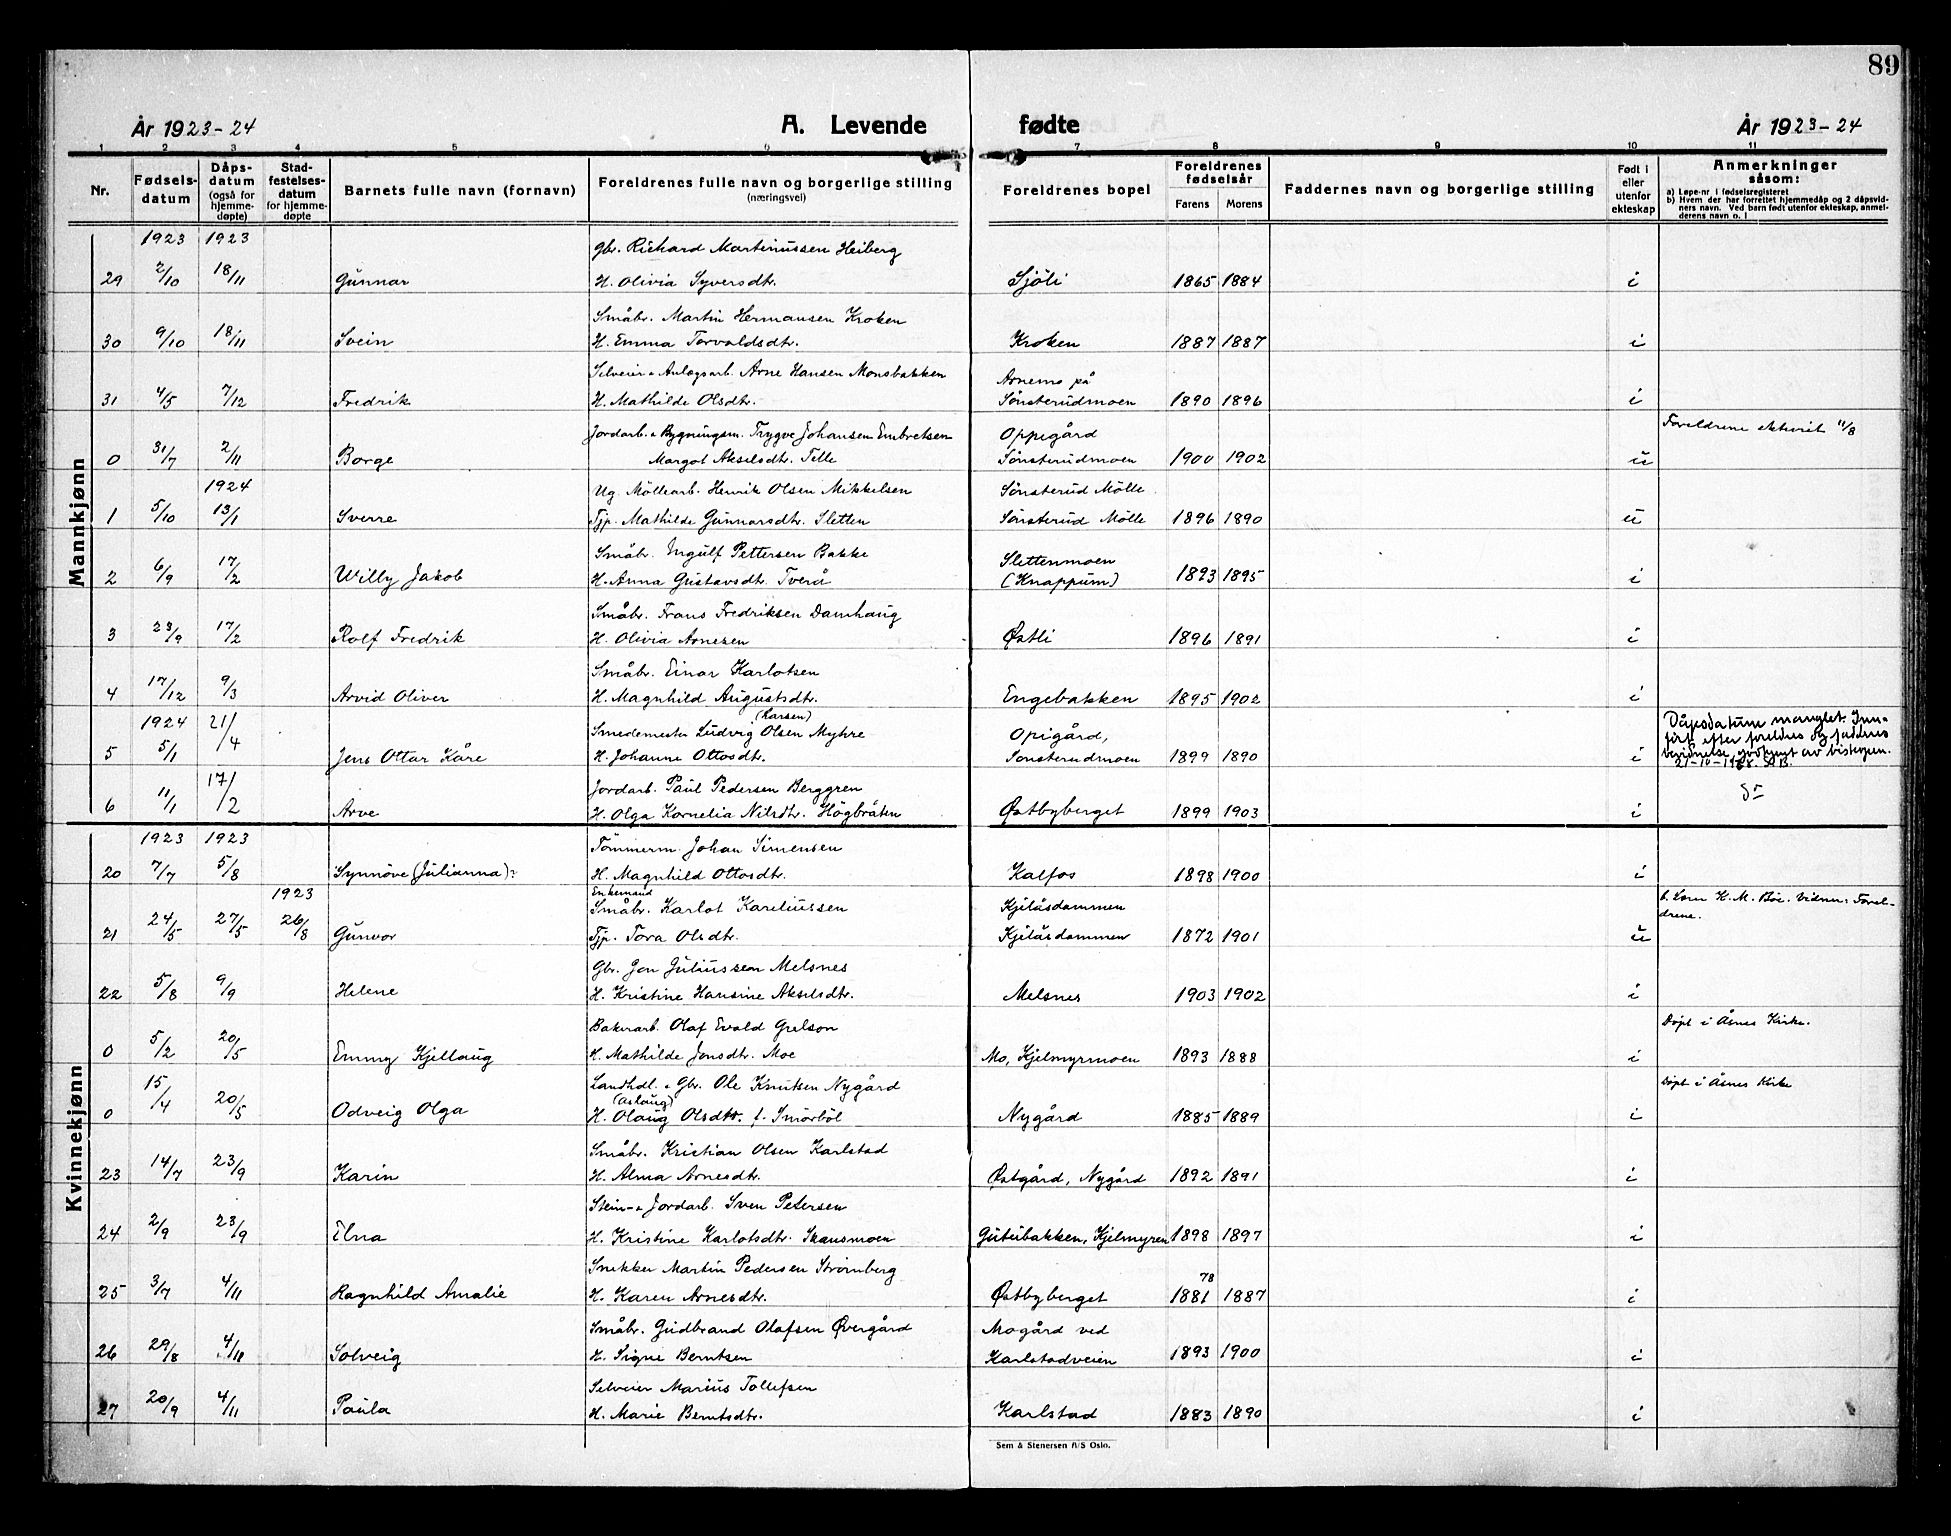 89
År 1923-24 A. Levende fødte År 1923-24
1 2 3 4 5 6 7 8 9 10 11
Nr. Fødselsdatum Dåpsdatum (også for hjemmedøpte) Stadfestelsesdatum for hjemmedøpte Barnets fulle navn (fornavn) Foreldrenes fulle navn og borgerlige stilling (næringsvei) Foreldrenes bopel Foreldrenes fødselsår Farens Morens Faddernes navn og borgerlige stilling Født i eller utenfor ekteskap Anmerkninger såsom:
a) Løpe-nr i fødselsregisteret
b) Hvem der har forrettet hjemmedåp og 2 dåpsvidners navn. Ved barn født utenfor ekteskap, anmelderens navn o. l
Mannkjønn
1923 1923 Gbr. Richard Martinussen Heiberg
29 2/10 18/11 Gunnar H. Olivia Syversdtr. Sjöli 1865 1884 i
Småbr. Martin Hermansen Kroken
30 9/10 18/11 Svein H. Emma Torvaldsdtr. Kroken 1887 1887 i
Selveier & Anlægsarb. Arne Hansen Monsbakken Arnemo på
31 4/5 7/12 Fredrik H. Mathilde Olsdtr. Sönsterudmoen 1890 1896 i
Jordarb. & Bygningsm. Trygve Johansen Embretsen Oppigård Foreldrene ektevist 11/8
0 31/7 2/11 Borge Margot Akselsdtr. Telle Sönsterudmoen 1900 1902 u
1924 Ug. Möllearb. Henrik Olsen Mikkelsen Sönsterud Mölle
1 5/10 13/1 Sverre Tjp. Mathilde Gunnarsdtr. Sletten Sönsterud Mölle 1896 1890 u
Småbr. Ingulf Pettersen Bakke Slettenmoen
2 6/9 17/2 Willy Jakob H. Anna Gustavsdtr. Tverå (Knappum) 1893 1895 i
Småbr. Frans Fredriksen Damhaug
3 23/9 17/2 Rolf Fredrik H. Olivia Arnesen Østli 1896 1891 i
Småbr. Einar Karlotsen
4 17/12 9/3 Arvid Oliver H. Magnhild Augustsdtr. Engebakken 1895 1902 i
(Larsen)
1924 21/4 Smedemester Ludvig Olsen Myhre Opigård, Dåpsdatum manglet. Inn-
ført efter foreldres og fadderes
5 5/1 Jens Ottar Kåre H. Johanne Ottosdtr. Sonsterudmoen 1899 1890 i bevidnelse, godkjent av biskopen.
21-10-19
17/2 Jordarb. Paul Pedersen Berggren
6 11/1 Arve H. Olga Kornelia Nilsdtr. Högbråten Østbyberget 1899 1903 i
Kvinnekjønn
1923 1923 Tömmerm. Johan Simensen
20 7/7 5/8 Synnöve (Julianna)? H. Magnhild Ottosdtr. Kalfos 1898 1900 i
1923 Enkemand
Småbr. Karlot Kareliussen Kjelåsdammen b. Lærer H. M. Böe. Vidner: Forel-
drene.
21 24/5 27/5 26/8 Gunvor Tjp. Tora Olsdtr. Kjelåsdammen 1872 1901 u
Gbr. Jon Juliussen Melsnes
22 5/8 9/9 Helene H. Kristine Hansine Akselsdtr. Melsnes 1903 1902 i
Bakerarb. Olaf Evald Grelson Döpt i Åsnes Kirke.
0 5/2 20/5 Emmy Kjellaug H. Mathilde Jensdtr. Moe Mo, Kjelmyrmoen 1893 1888 i
Landhdl. & Gbr. Ole Knutsen Nygård Döpt i Åsnes Kirke
(Aslaug)
0 15/4 20/5 Odveig Olga H. Olaug Olsdtr. f. Smörböl Nygård 1885 1889 i
Småbr. Kristian Olsen Karlstad
23 14/7 23/9 Karin H. Alma Arnesdtr. Østgård, Nygård 1892 1891 i
Stein- & Jordarb. Sven Petersen
24 2/9 23/9 Elna H. Kristine Karlotsdtr. Skansmoen Gutubakken, Kjelmyren 1898 1897 i
Snekker Martin Pedersen Strømberg 78
25 3/7 4/11 Ragnhild Amalie H. Karen Arnesdtr. Østbyberget 1881 1887 i
Småbr. Gudbrand Olafsen Øvergård Mogård ved
26 29/8 4/11 Solveig H. Signe Berntsen Karlstadveien 1893 1900 i
Selveier Marius Tollefsen
27 20/9 4/11 Paula H. Marie Berntsdtr. Karlstad 1883 1890 i
Sem & Stenersen A/S Oslo.